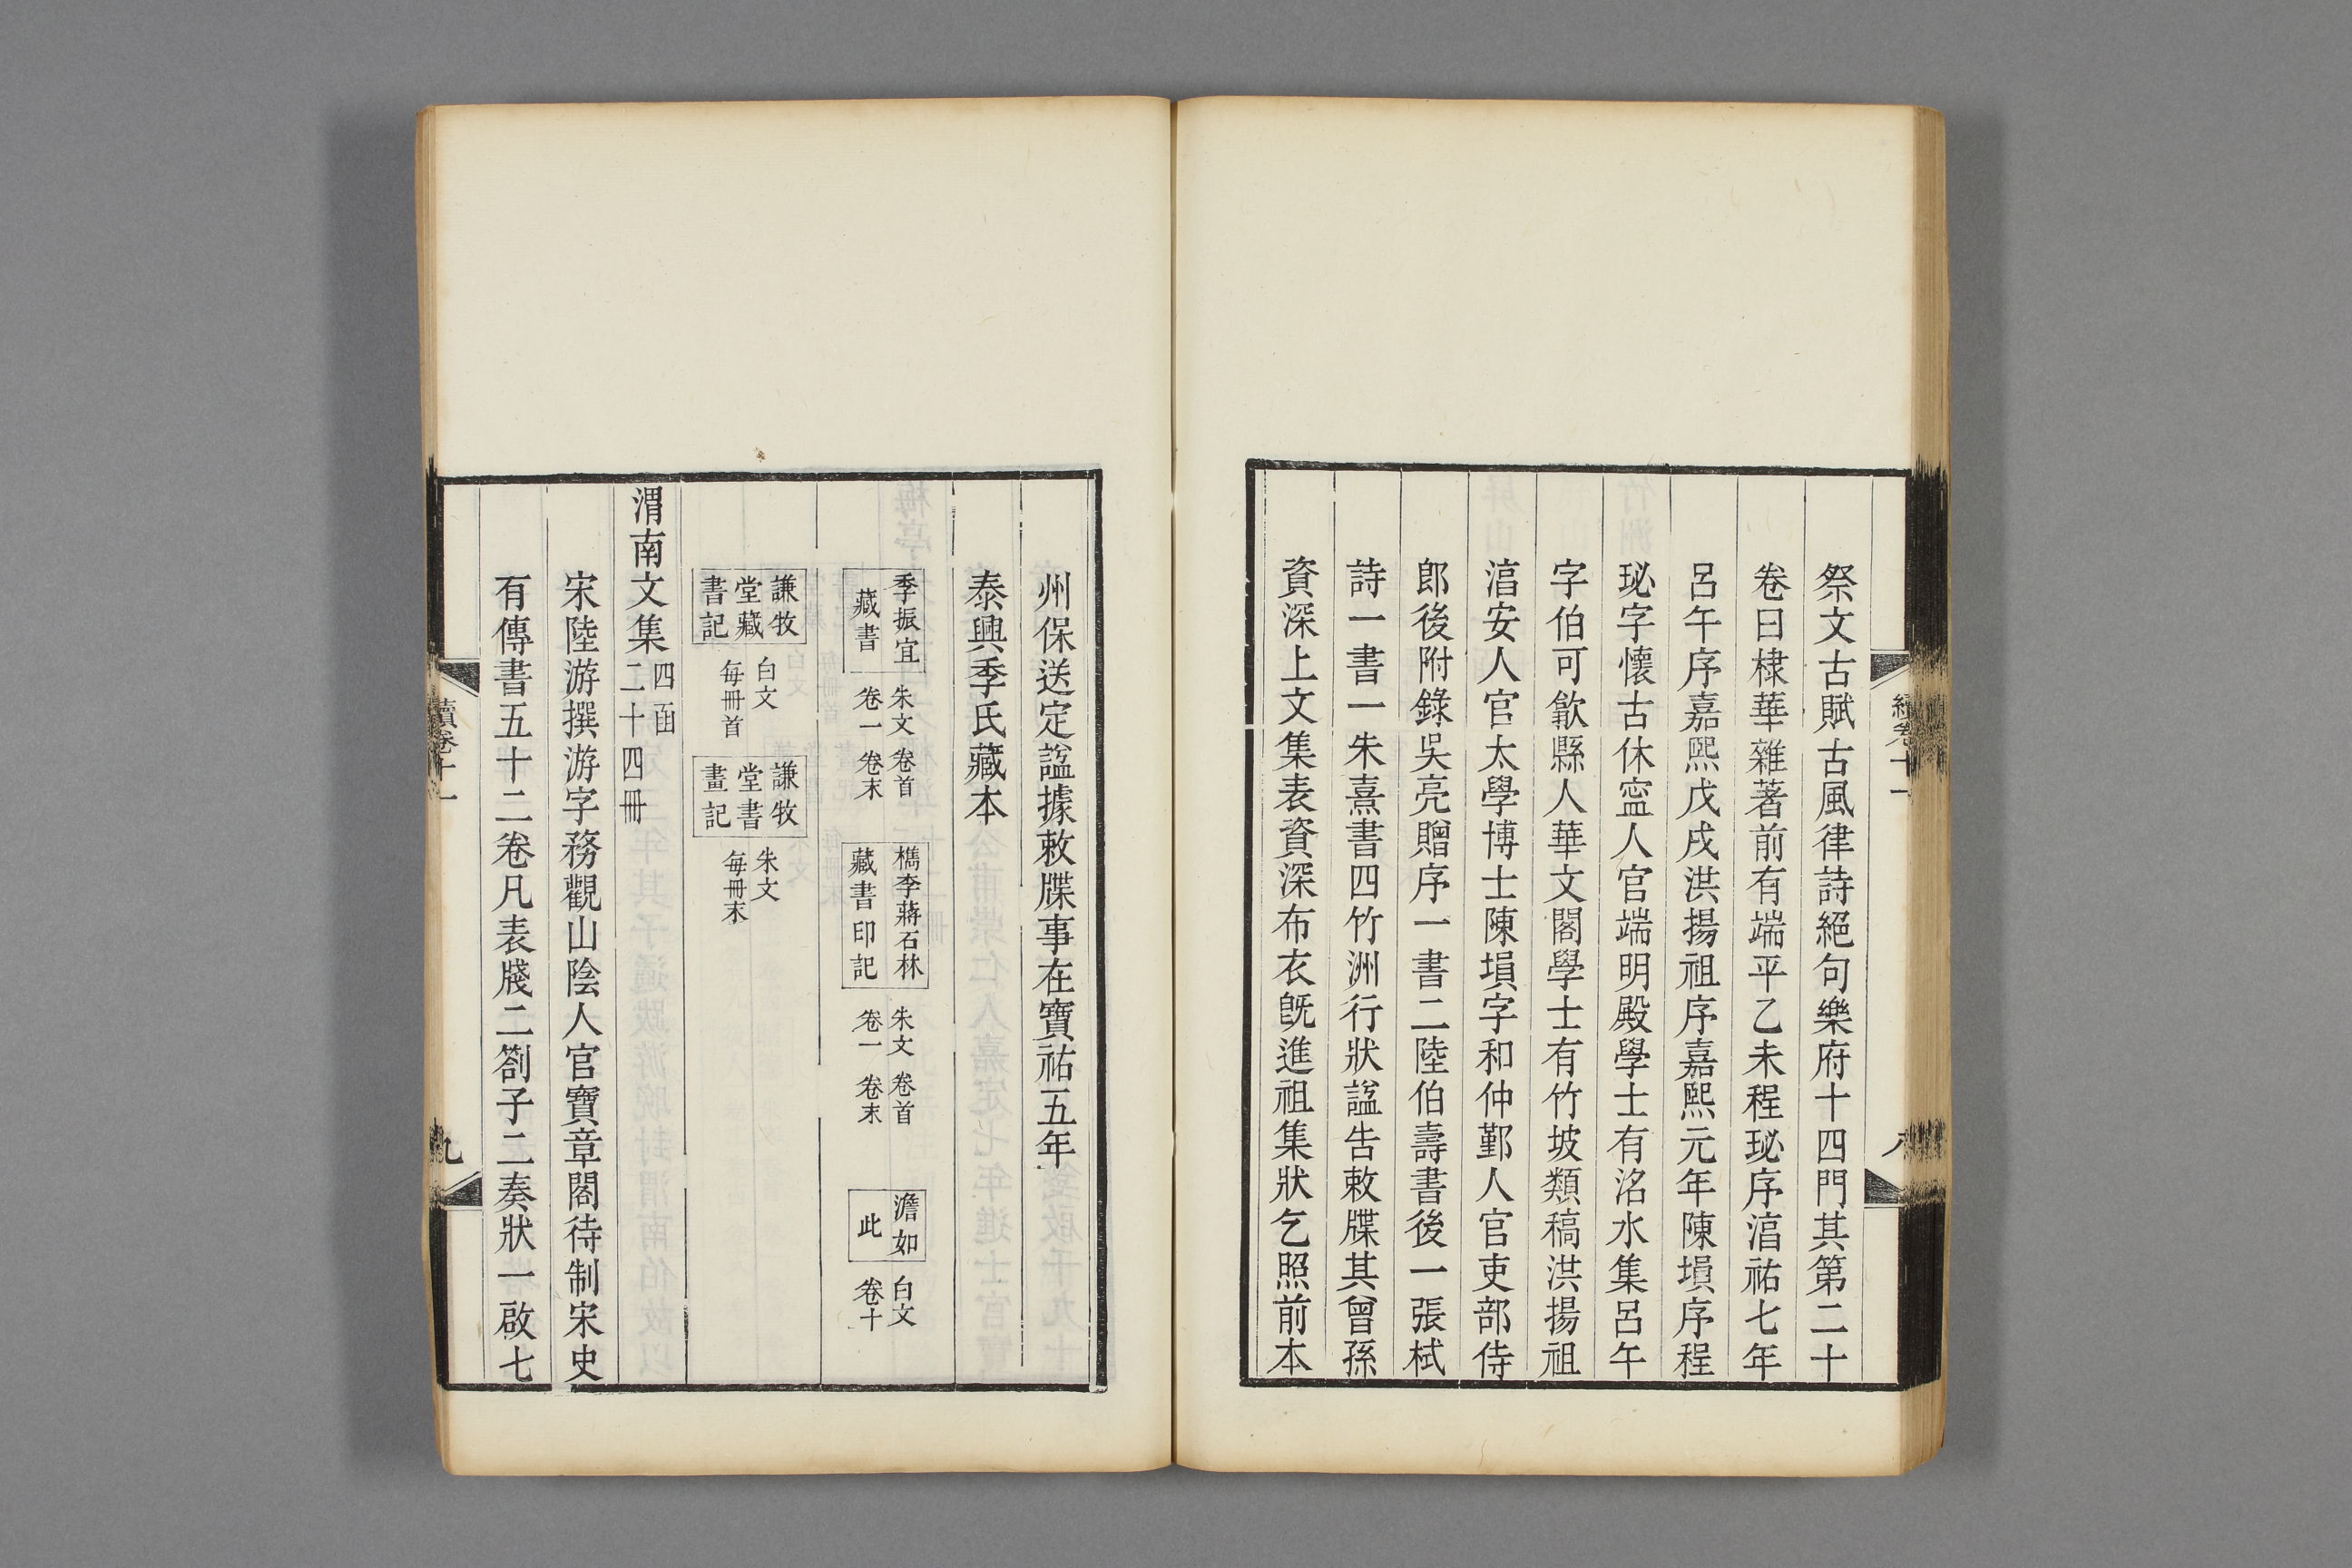 祭文古賦古風律詩絕句樂府十四門其第二十
卷曰棣華雜著前有端平乙未程珌序湻祐七年
呂午序嘉熙戊戌洪揚祖序嘉熙元年陳塤序程
珌字懷古休寍人官端明殿學士有洺水集呂午
字伯可歙縣人華文閣學士有竹坡類稿洪揚祖
湻安人官太學博士陳塤字和仲鄞人官吏部侍
郎後附錄吳亮贈序一書二陸伯壽書後一張栻
詩一書一朱熹書四竹洲行狀諡告敕牒其曾孫
資深上文集表資深布衣旣進祖集狀乞照前本
州保送定諡據敕牒事在寶祐五年
泰興季氏藏本
季振宜
藏書
朱文 卷首
卷一 卷末
檇李蔣石林
藏書印記
朱文 卷首
卷一 卷末
澹如
此
白文
卷十
謙牧
堂藏
書記
白文
每冊首
謙牧
堂書
畫記
朱文
每冊末
渭南文集
四函
二十四冊
宋陸游撰游字務觀山陰人官寶章閣待制宋史
有傳書五十二卷凡表牋二劄子二奏狀一啟七
續卷十一
九